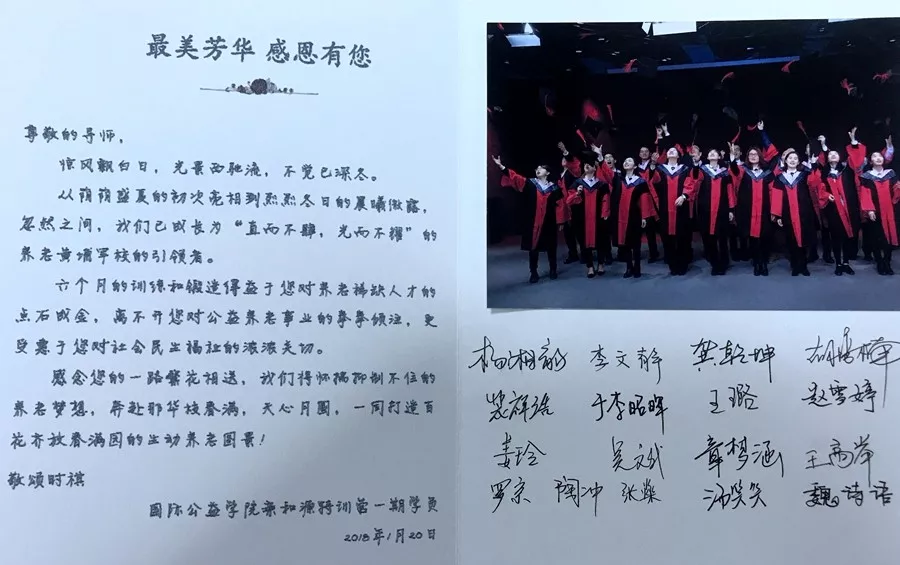 最美芳华 感恩有您
尊敬的导师，
惊风飘白日，光景西驰流，不觉已深冬。
从荫荫盛夏的初次亮相到熙熙冬日的晨曦微露，
忽然之间，我们已成长为“直而不肆，光而不耀”的
养老黄埔军校的引领者。
六个月的训练和锻造得益于您对养老稀缺人才的
点石成金，离不开您对公益养老事业的拳拳倾注，更
受惠于您对社会民生福祉的浓浓关切。
感念您的一路繁花相送，我们得怀揣抑制不住的
养老梦想，奔赴那华枝春满，天心月圆，一同打造百
花齐放春满园的生动养老图景！
敬颂时祺
国际公益学院亲和源特训营一期学员
2018年1月20日
李文静 龚乾坤
于李昭晖 王璐 赵雪婷
姜玲 吴文斌 章梦涵
罗京 陶冲 张燊 汤笑笑 魏诗语